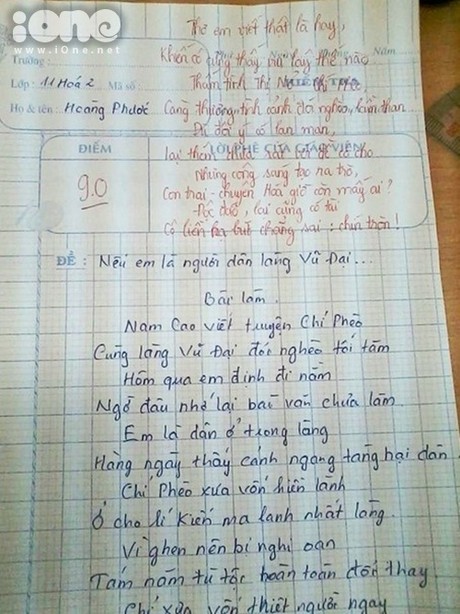 ione
www.iOne.net
Thơ em viết thật là hay,
Khiến cô cũng thấy
Trường:
Năm
Lớp: 11 Hoá 2 Mã số
Thấm tình Thị
Họ & tên: Hoàng Phước
Càng thương tình cảnh đói nghèo, lầm than...
Dù đôi ý có lan man,
ĐIỂM
LỜI PHÊ CỦA GIÁO VIÊN
9.0
Nhưng công sáng tạo ra trò,
Con trai - chuyên Hoá giờ còn mấy ai?
Độc đáo, lại cũng có tài
Cô liền hạ bút chẳng sai: chín tròn!
ĐỀ: Nếu em là người dân làng Vũ Đại...
Bài làm.
Nam Cao viết truyện Chí Phèo
Cùng làng Vũ Đại đói nghèo tối tăm
Hôm qua em định đi nằm
Ngờ đâu nhớ lại bài văn chưa làm
Em là dân ở trong làng
Hàng ngày thấy cảnh ngang tàng hại dân
Chí Phèo xưa vốn hiền lành
Ở cho lí Kiến ma lanh nhất làng.
Vì ghen nên bị nghi oan
Tám năm tù tội hoàn toàn đổi thay.
Chí xưa vốn thiệt người ngay